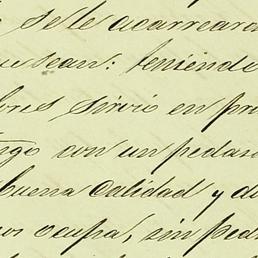 se le acarrear
sean: teniendo
sirvió en pr
con un pedaso
buena calidad y d
ocupa, sin ped